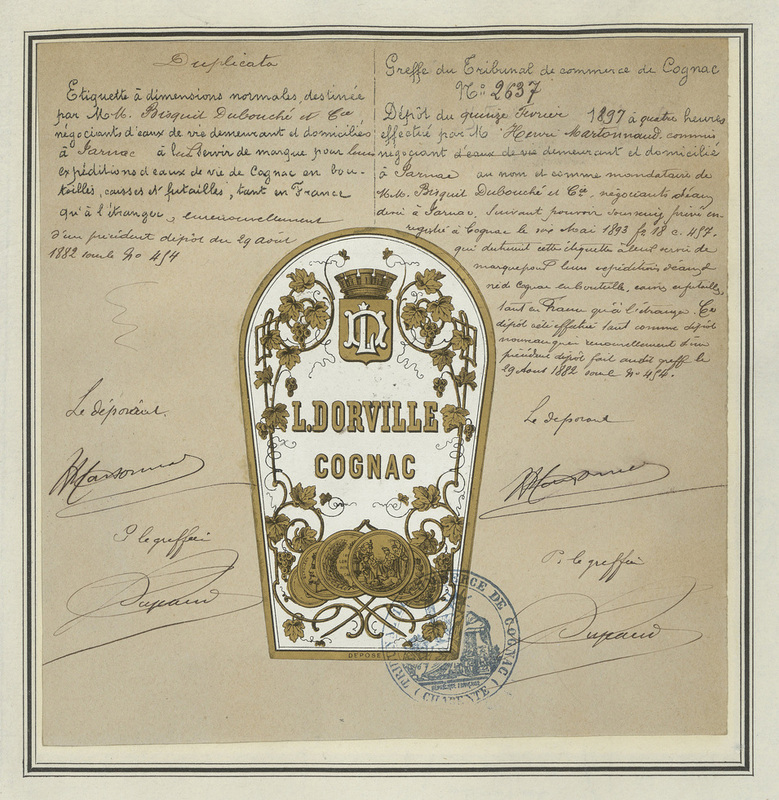 Duplicata
Etiquette à dimensions normales, destinée
par M.M. Bisquit Dubouché et Cie
négociants d'eaux de vie demeurant et domiciliés
à Jarnac à leur servir de marque pour leurs
expéditions d'eaux de vie de Cognac en bou-
teilles, caisses et futailles, tant en France
qu'à l'étranger, en renouvellement
d'un précédent dépôt du 29 août
1882 sous le No 454
Le déposant.
P. le greffier
Greffe du Tribunal de commerce de Cognac
No 2637
Dépôt du quinze Fevrier 1897 à quatre heures
effectué par M Henri Martonnaud, commis
négociant d'eaux de vie demeurant et domicilié
à Jarnac au nom et comme mandataire de
M.M. Bisquit Dubouché et Cie, négociants d'eau
devie à Jarnac, suivant pouvoir sousseing privé en-
registré à Cognac le Mai 1893 fo 18 c. 457.
qui destinent cette étiquette à leur servir de
marque pour leurs expéditions d'eaux de
vie de Cognac en bouteilles, caisses et futailles,
tant en France qu'à l'étranger. Ce
dépôt est effectué tant comme dépôt
nouveau qu'en renouvellement d'un
précédent dépôt fait audit greffe le
29 Aout 1882 sous le No 454.
Le deposant
P. le greffier
LD
L. DORVILLE
COGNAC
DEPOSÉ
TRIBUNAL DE COMMERCE DE COGNAC
(CHARENTE)
REPUBLIQUE FRANÇAISE